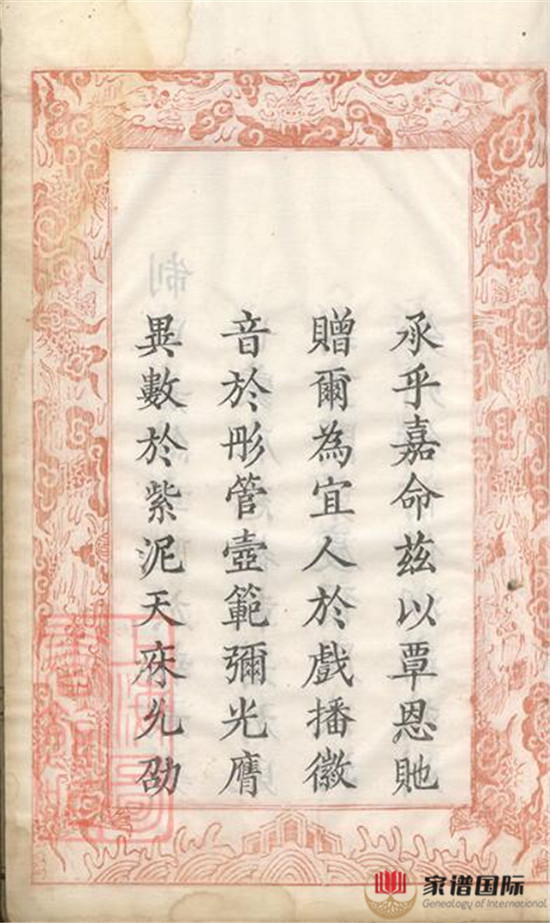 承乎嘉命茲以覃恩貤
贈爾為宜人於戲播徽
音於彤管壼範彌光膺
異數於紫泥天庥允劭
制
家谱国际
Genealogy of International